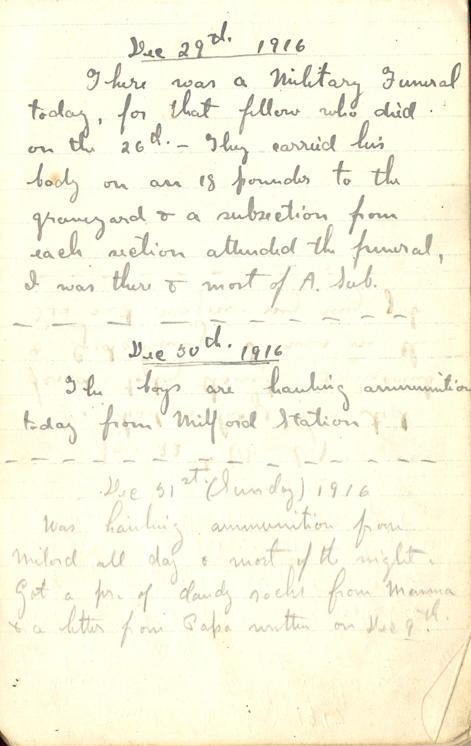 Dec 29th. 1916
There was a Military Funeral
today, for that fellow who died
on the 26th. - They carried his
body on an 18 pounder to the
graveyard & a subsection from
each section attended the funeral,
I was there & most of A. Sub.
Dec 30th. 1916
The boys are hauling ammunition
today from Milford Station
Dec 31st. (Sunday) 1916
Was hauling ammunition from
Milord all day & most of the night.
Got a pr. of dandy socks from Mamma
& a letter from Papa written on Dec 9th.